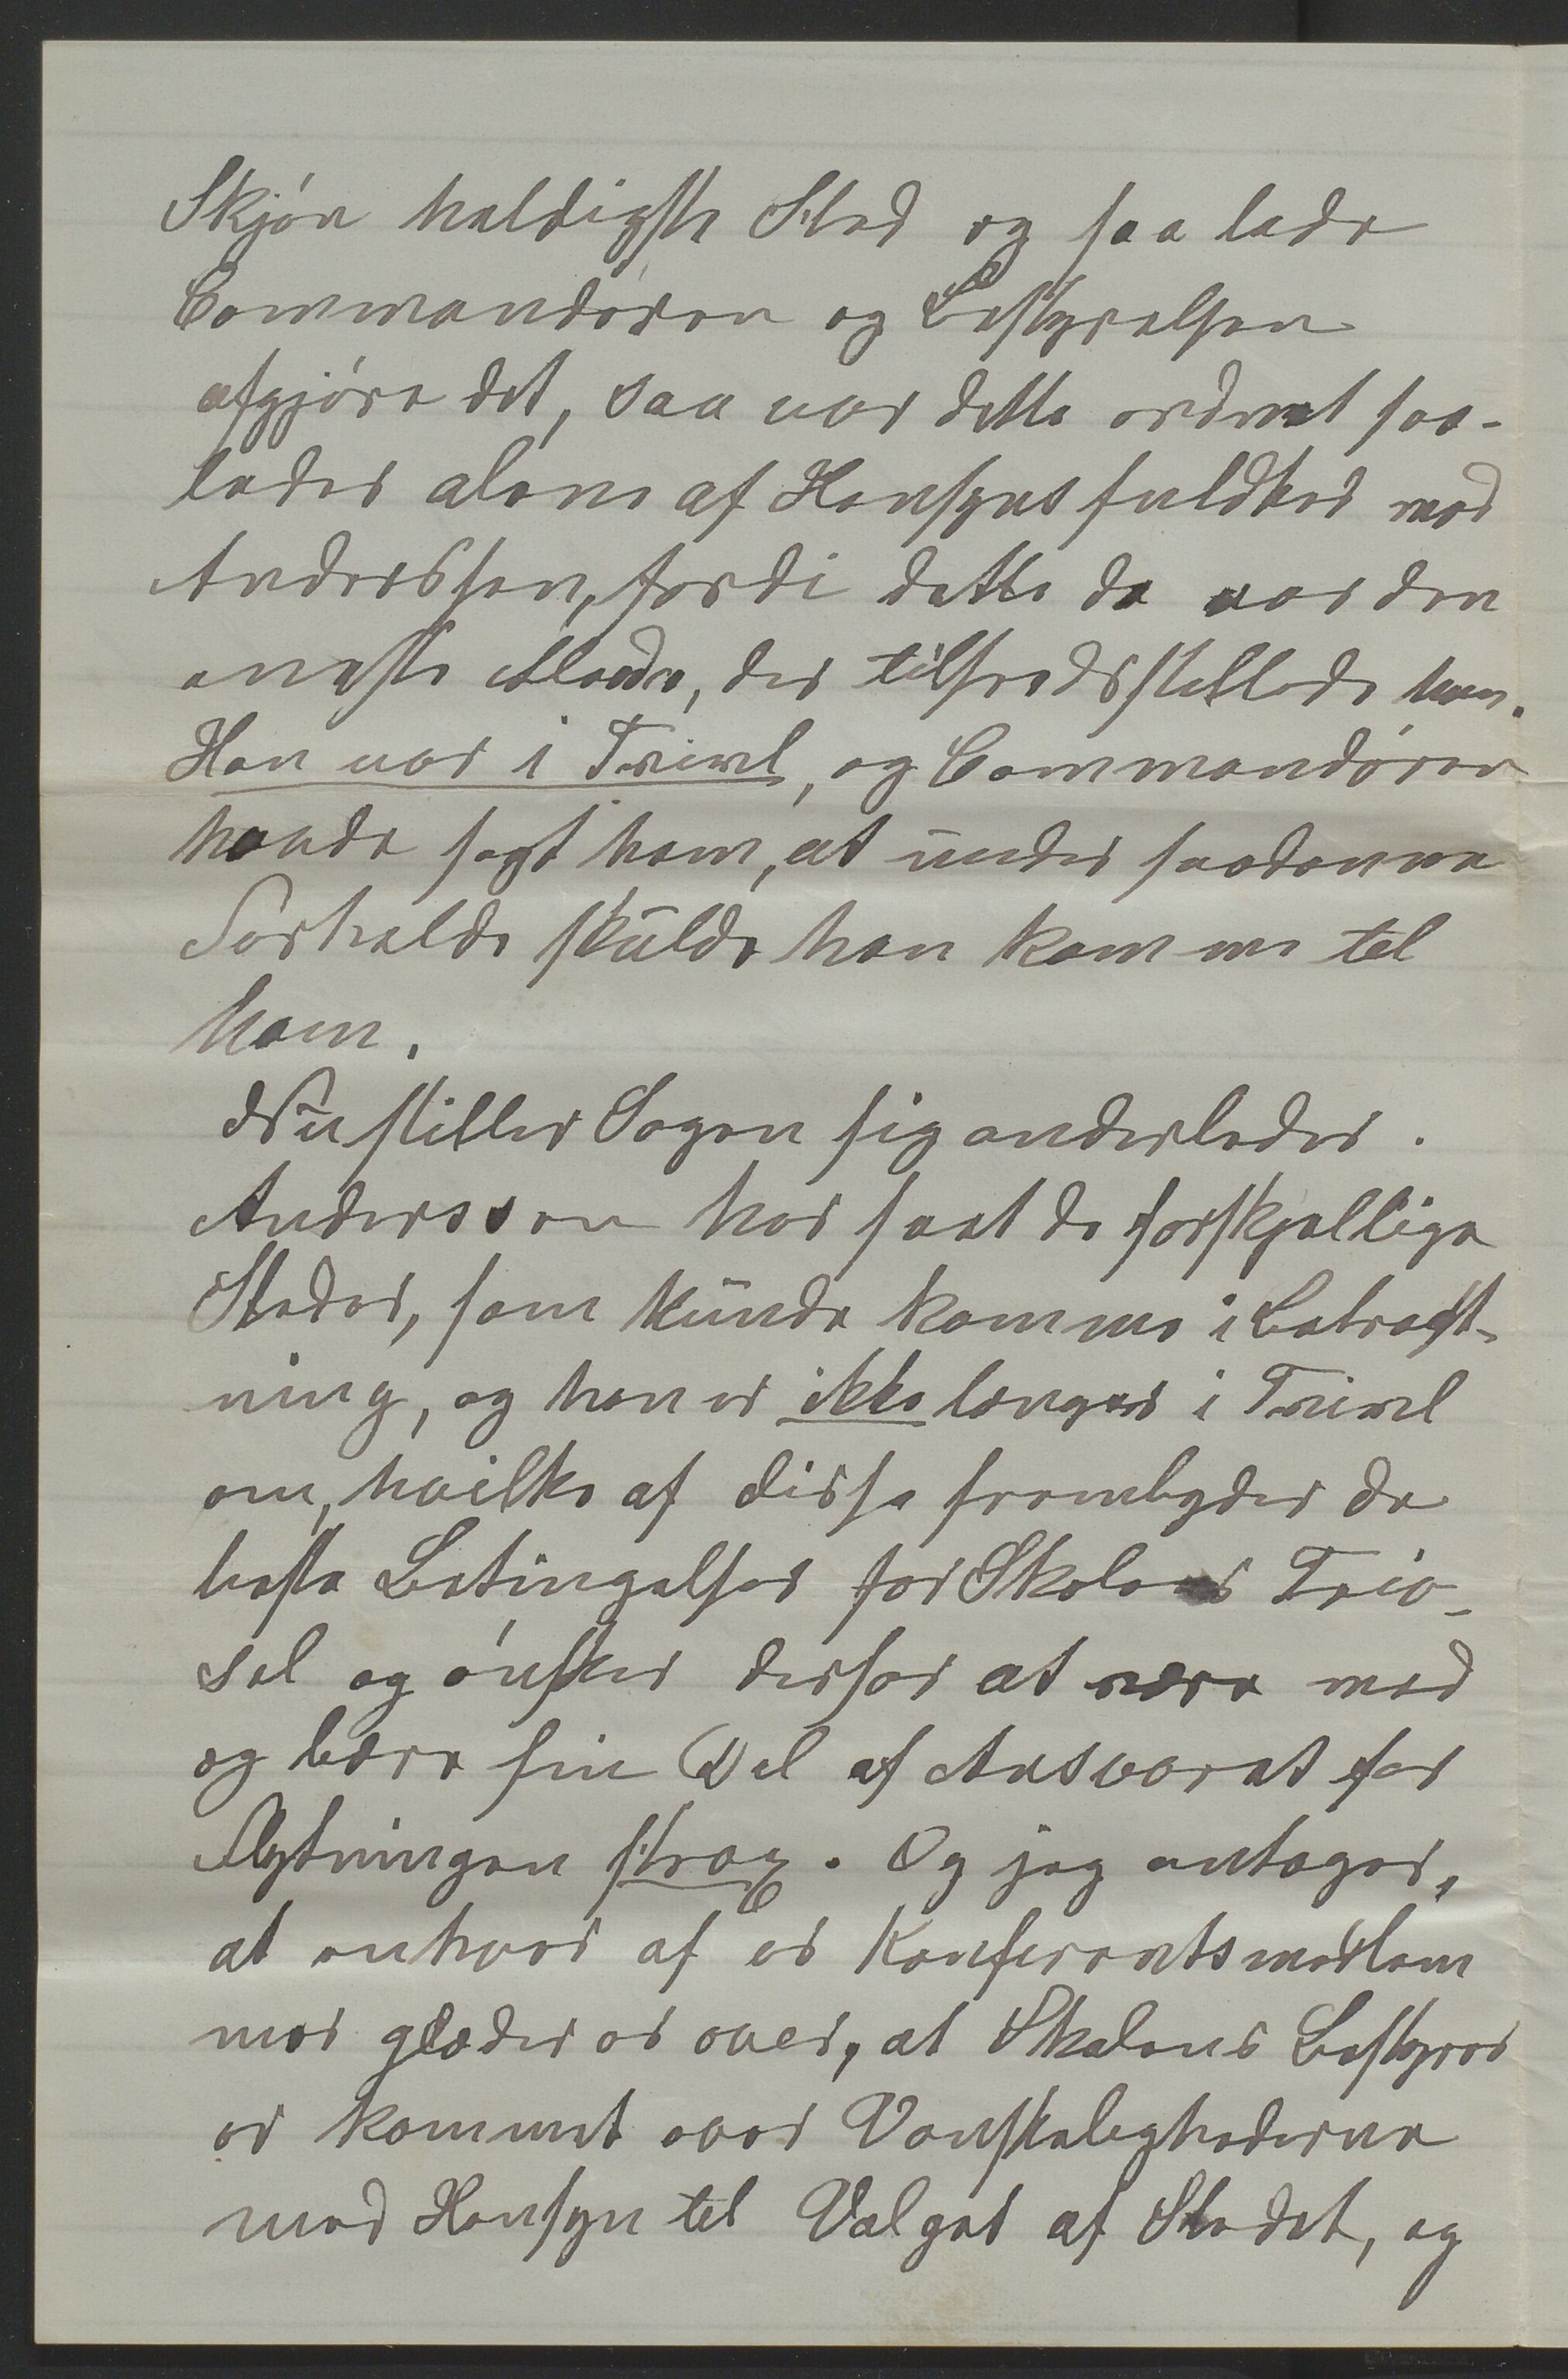 Skjøn heldigste Sted og saa lade
Commandøren og Bestyrelsen
afgjøre det, saa var dette ordnet saa-
ledes alene af Hensynsfuldhed mod
Anderssen, fordi dette da var den
eneste Maade, der tilfredsstillede ham.
Han var i Tvivl, og Commandøren
havde sagt ham, at under saadanne
Forholde skulde han komme til
ham.
Nu stiller Sagen sig anderledes.
Anderssen har seet de forskjellige
Steder, som kunde komme i Betragt-
ning, og han er ikke længer i Tvivl
om, hvilke af disse frembyder de
beste Betingelser for Skolens Triv-
sel og ønsker derfor at være med
og bære sin Del af Ansvaret for
Flytningen strax. Og jeg antager,
at enhver af os Konferentsmedlem
mer glæder os over, at Skolens Bestyrer
er kommet over Vanskelighederne
med Hensyn til Valget af Stedet, og